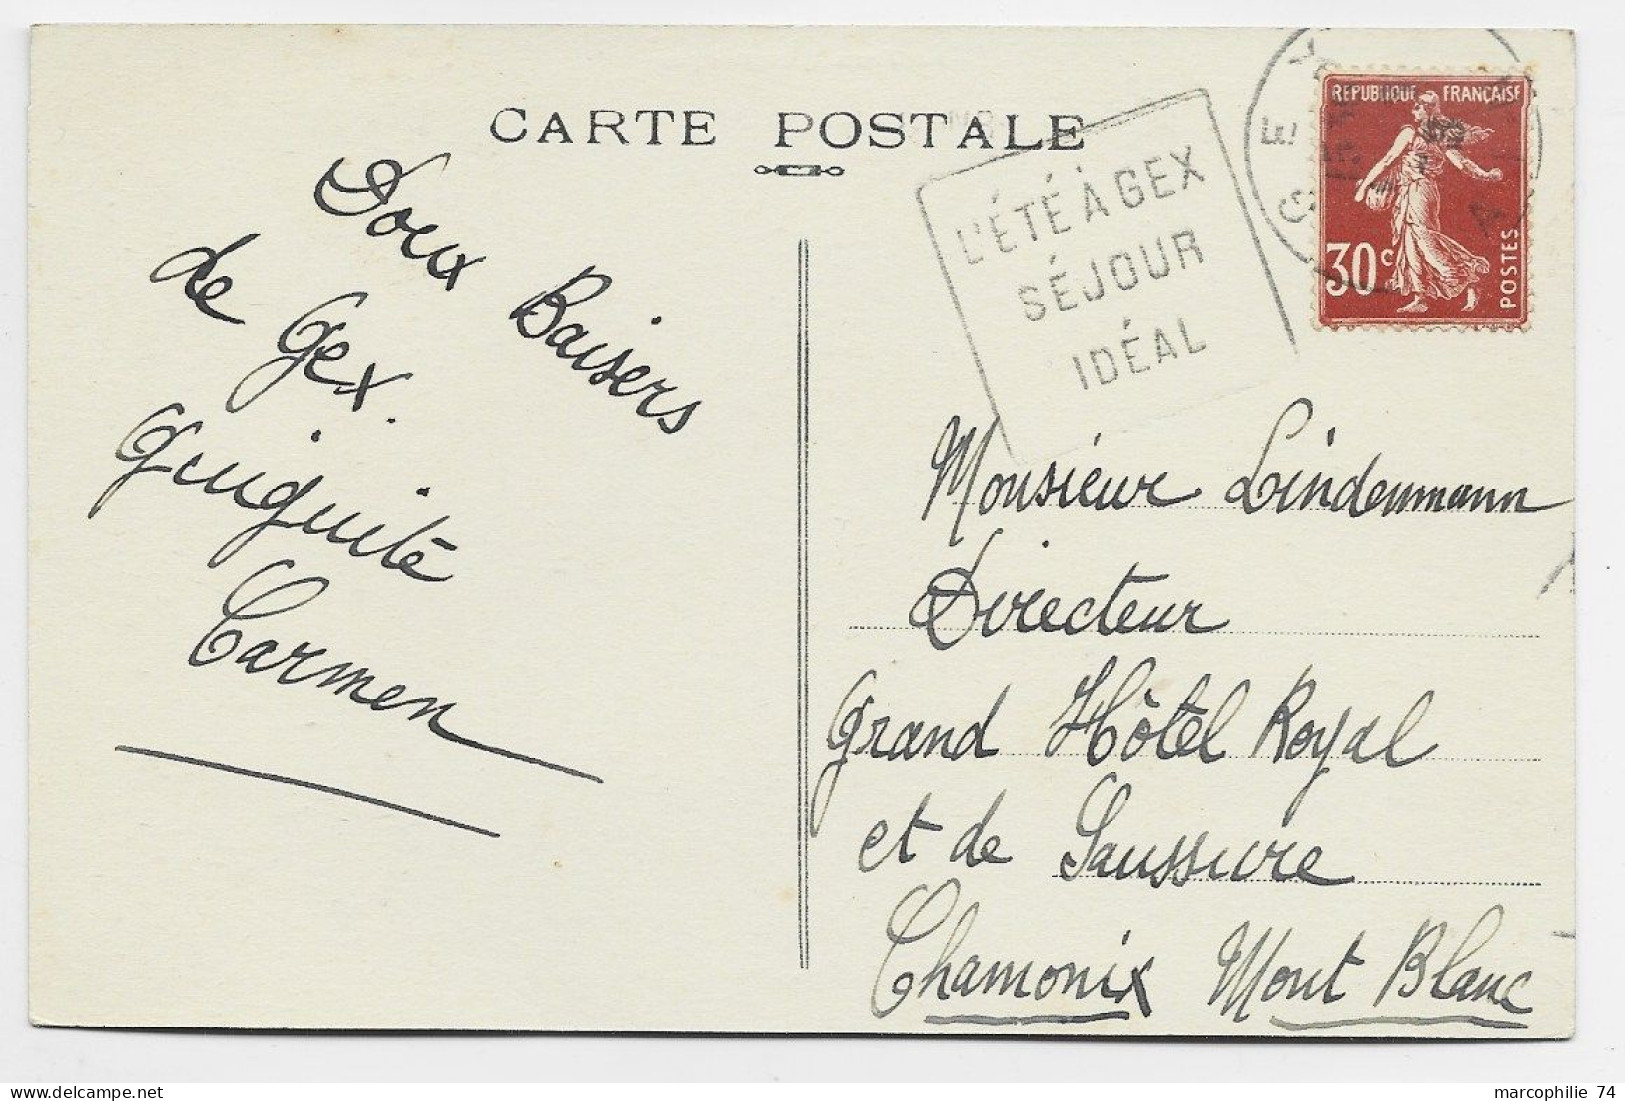 CARTE POSTALE
L'ÉTÉ À GEX
SÉJOUR
IDÉAL
RÉPUBLIQUE FRANÇAISE
30c
POSTES
Doux Baisers
de Gex.
Guiguite
Carmen
Monsieur Lindenmann
Directeur
Grand Hôtel Royal
et de Saussure
Chamonix Mont Blanc
marcophilie 74